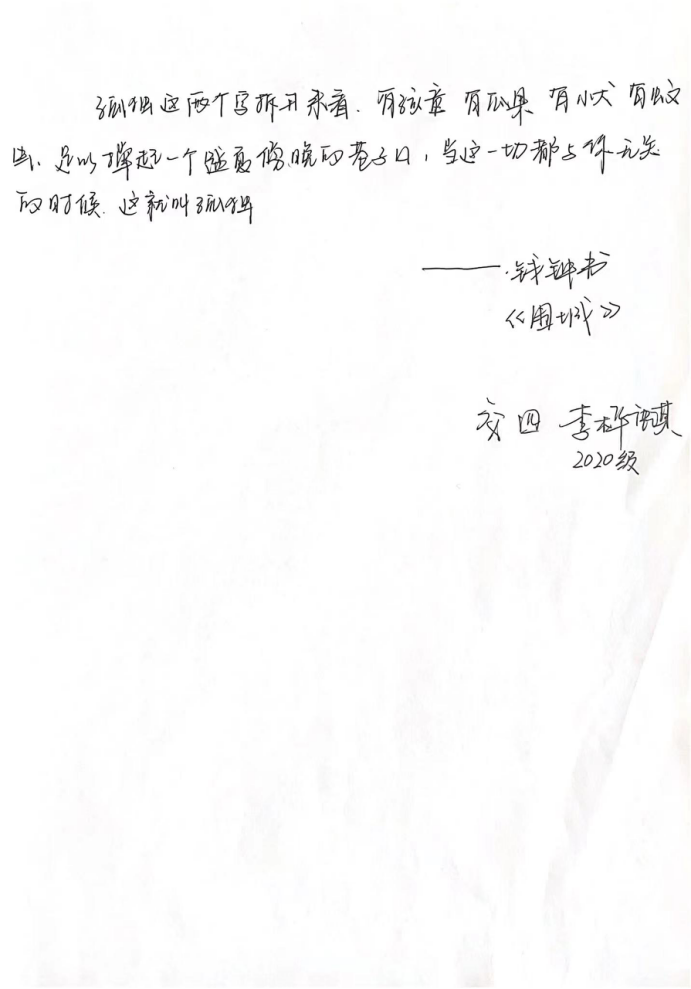 孤独这两个字拆开来看.有孩童 有瓜果 有小犬 有蚊
虫、足以撑起一个盛夏傍晚的巷子口，当这一切都与你无关
的时候.这就叫孤独
——.钱钟书
《围城》
交四 李桦祺
2020级